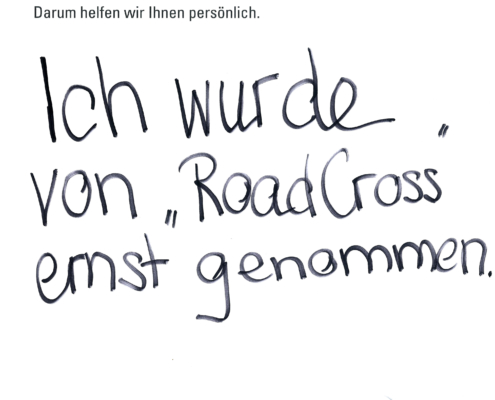 Darum helfen wir Ihnen persönlich.
Ich wurde
von „RoadCross"
ernst genommen.